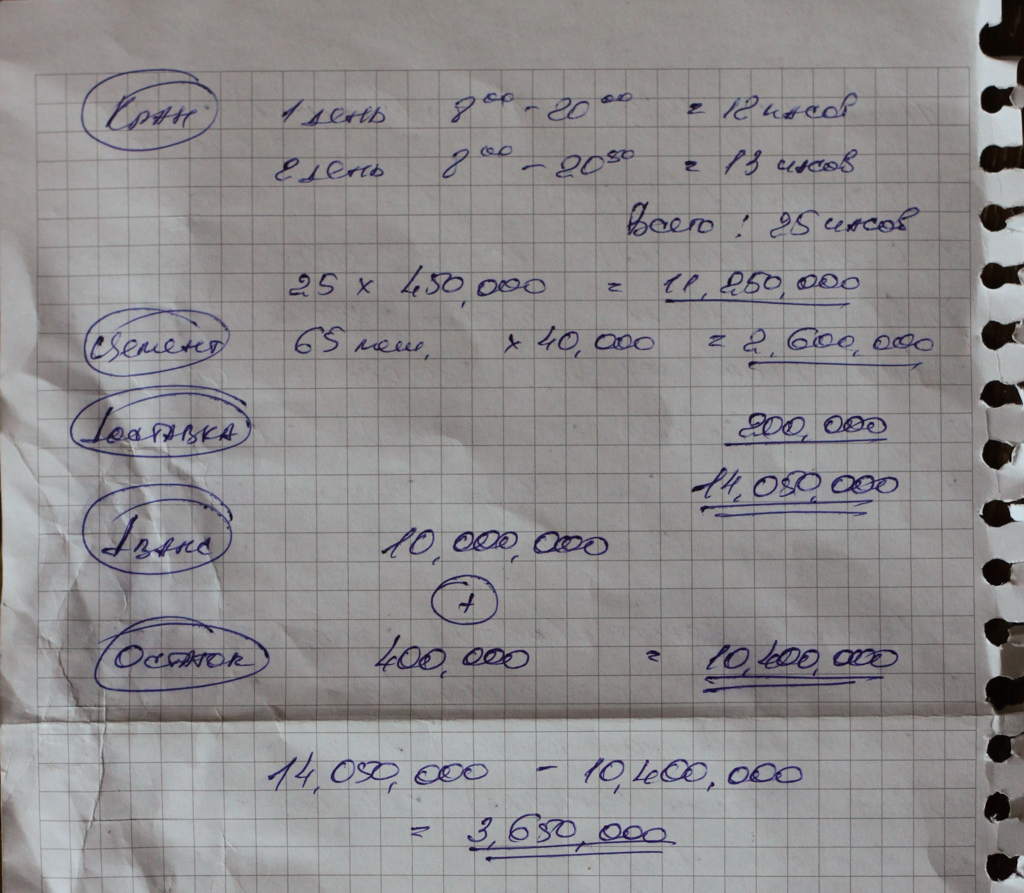 Кран 1 день 8⁰⁰ - 20⁰⁰ = 12 часов
2 день 8⁰⁰ - 20⁵⁰ = 13 часов
Всего : 25 часов
25 × 450,000 = 11,250,000
Цемент 65 меш. × 40,000 = 2,600,000
Доставка 200,000
14,050,000
Аванс 10,000,000
+
Остаток 400,000 = 10,400,000
14,050,000 - 10,400,000
= 3,650,000